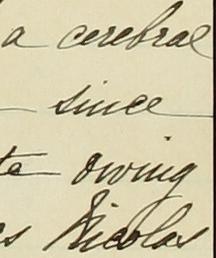 a cerebral
since
te owing
es Nicolas